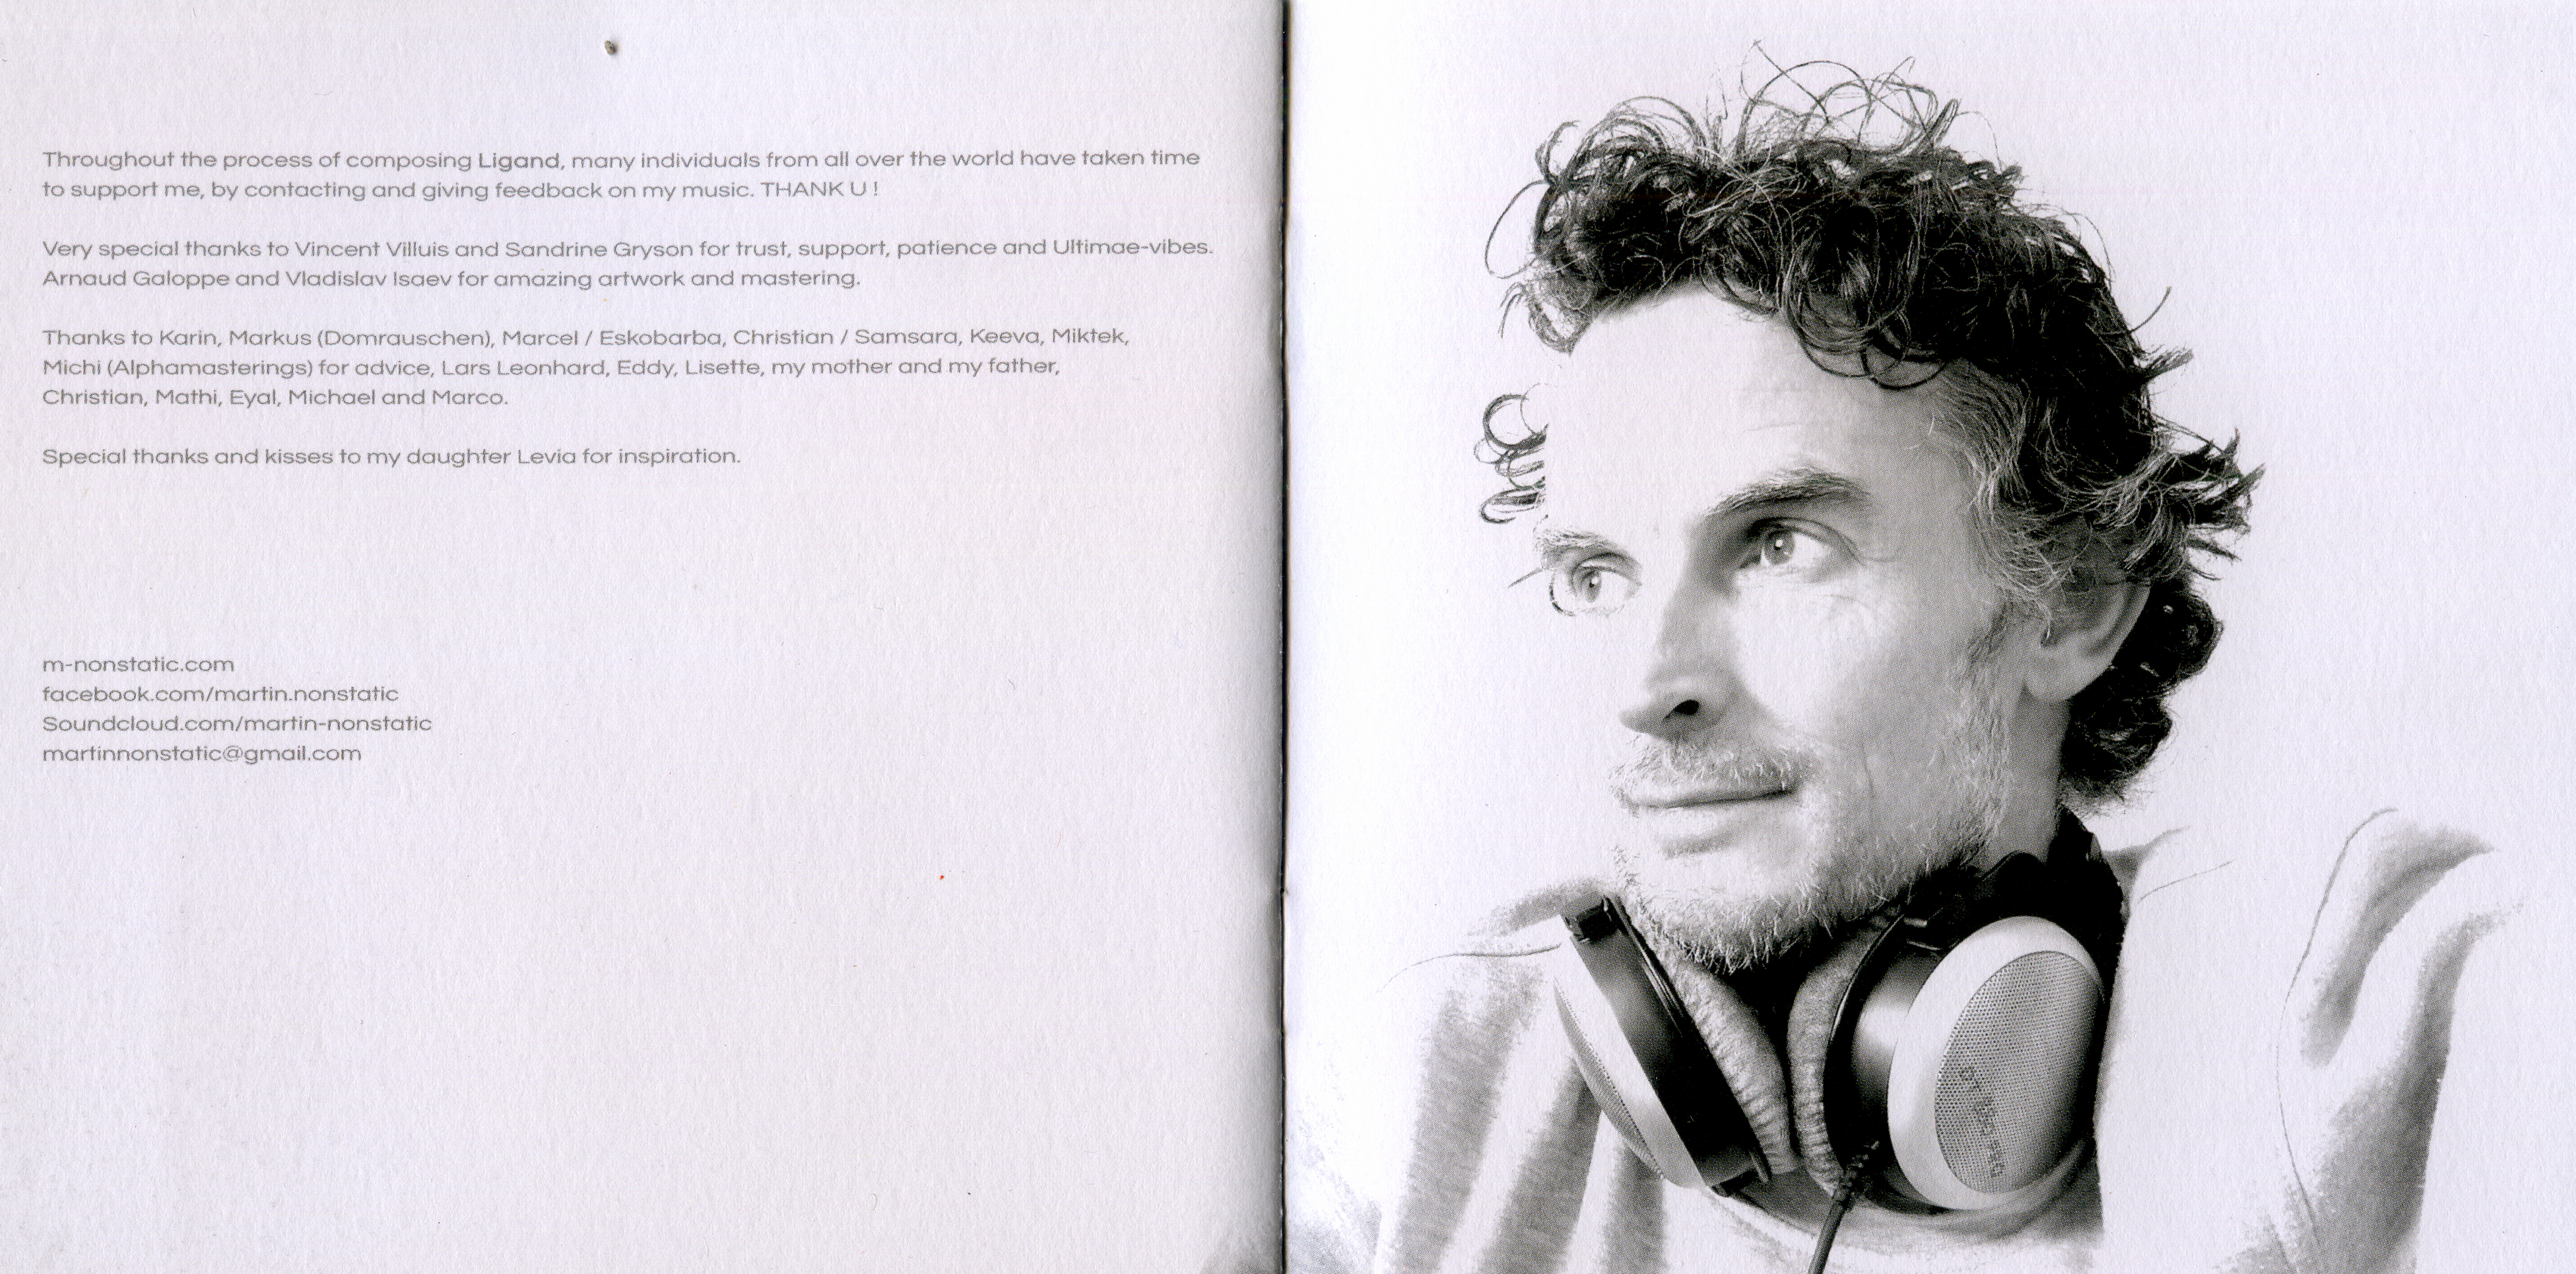 Throughout the process of composing Ligand, many individuals from all over the world have taken time
to support me, by contacting and giving feedback on my music. THANK U !
Very special thanks to Vincent Villuis and Sandrine Gryson for trust, support, patience and Ultimae-vibes.
Arnaud Galoppe and Vladislav Isaev for amazing artwork and mastering.
Thanks to Karin, Markus (Domrauschen), Marcel / Eskobarba, Christian / Samsara, Keeva, Miktek,
Michi (Alphamasterings) for advice, Lars Leonhard, Eddy, Lisette, my mother and my father,
Christian, Mathi, Eyal, Michael and Marco.
Special thanks and kisses to my daughter Levia for inspiration.
m-nonstatic.com
facebook.com/martin.nonstatic
Soundcloud.com/martin-nonstatic
martinnonstatic@gmail.com